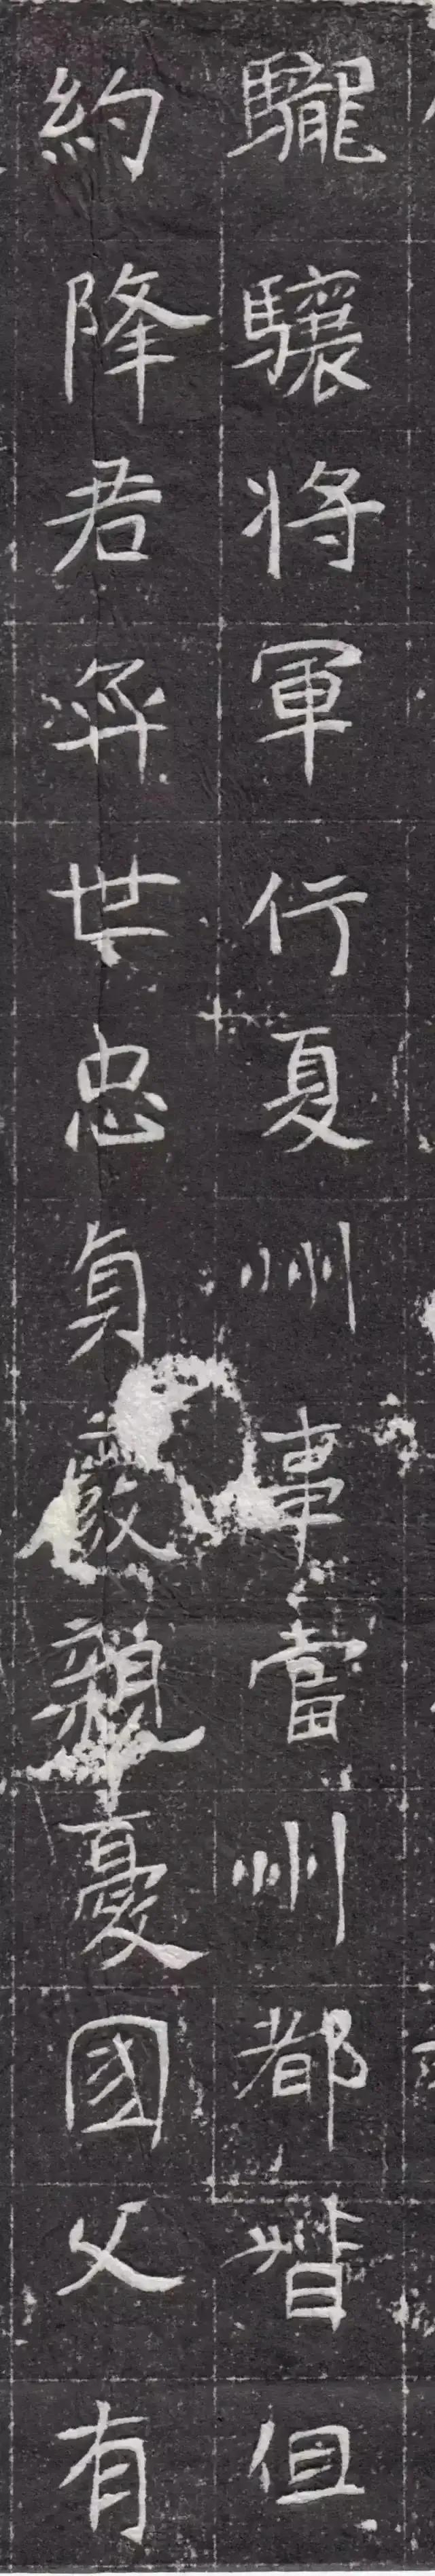 䮾驤将軍行夏州事當州都督但
約降君弈世忠貞嚴親憂國父有